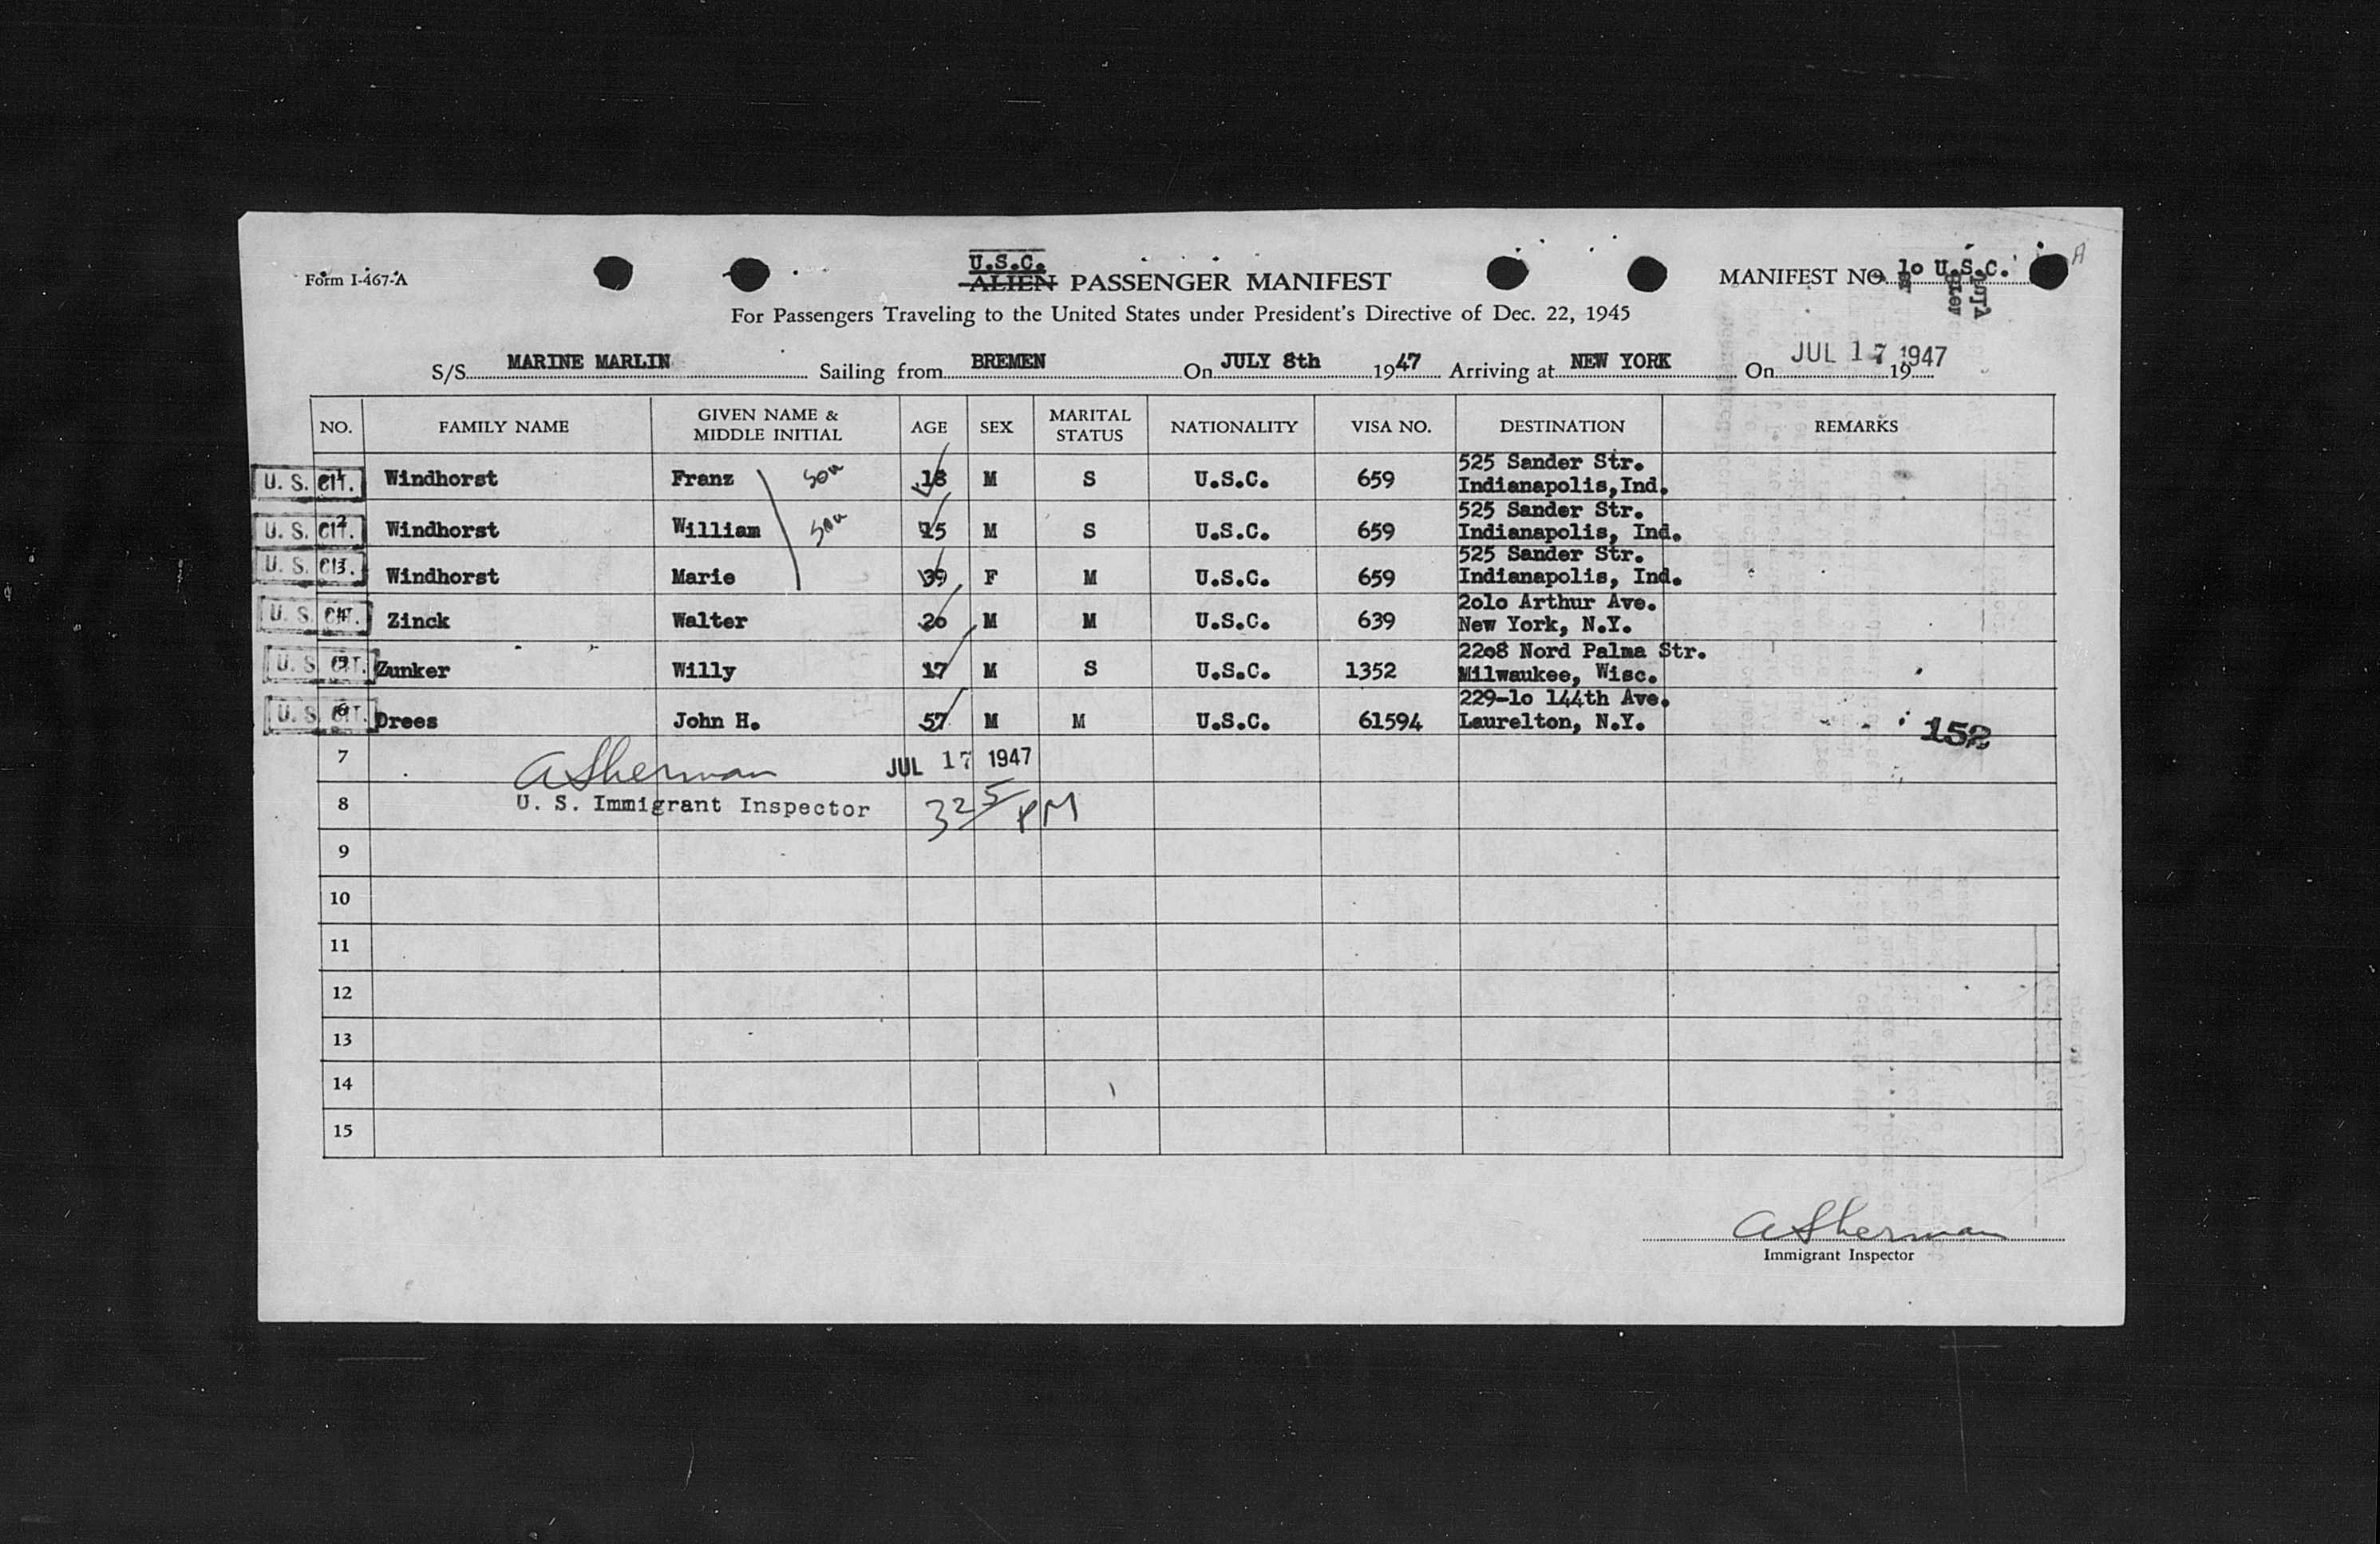 Form I-467-A
U.S.C.
ALIEN PASSENGER MANIFEST
MANIFEST NO. lo U.S.C.
For Passengers Traveling to the United States under President's Directive of Dec. 22, 1945
S/S MARINE MARLIN Sailing from BREMEN On JULY 8th 1947 Arriving at NEW YORK On JUL 17 1947 19
NO. FAMILY NAME GIVEN NAME & MIDDLE INITIAL AGE SEX MARITAL STATUS NATIONALITY VISA NO. DESTINATION REMARKS
U. S. CIT. 1 Windhorst Franz son 18 M S U.S.C. 659 525 Sander Str.
Indianapolis,Ind.
U. S. CIT. 2 Windhorst William son 15 M S U.S.C. 659 525 Sander Str.
Indianapolis, Ind.
U. S. CIT. 3 Windhorst Marie 39 F M U.S.C. 659 525 Sander Str.
Indianapolis, Ind.
U. S. CIT. 4 Zinck Walter 26 M M U.S.C. 639 2olo Arthur Ave.
New York, N.Y.
U. S. CIT. 5 Zunker Willy 17 M S U.S.C. 1352 22o8 Nord Palma Str.
Milwaukee, Wisc.
U. S. CIT. 6 Drees John H. 57 M M U.S.C. 61594 229-lo 144th Ave.
Laurelton, N.Y.
152
7 ASherman JUL 17 1947
8 U. S. Immigrant Inspector 325 PM
9
10
11
12
13
14
15
ASherman
Immigrant Inspector